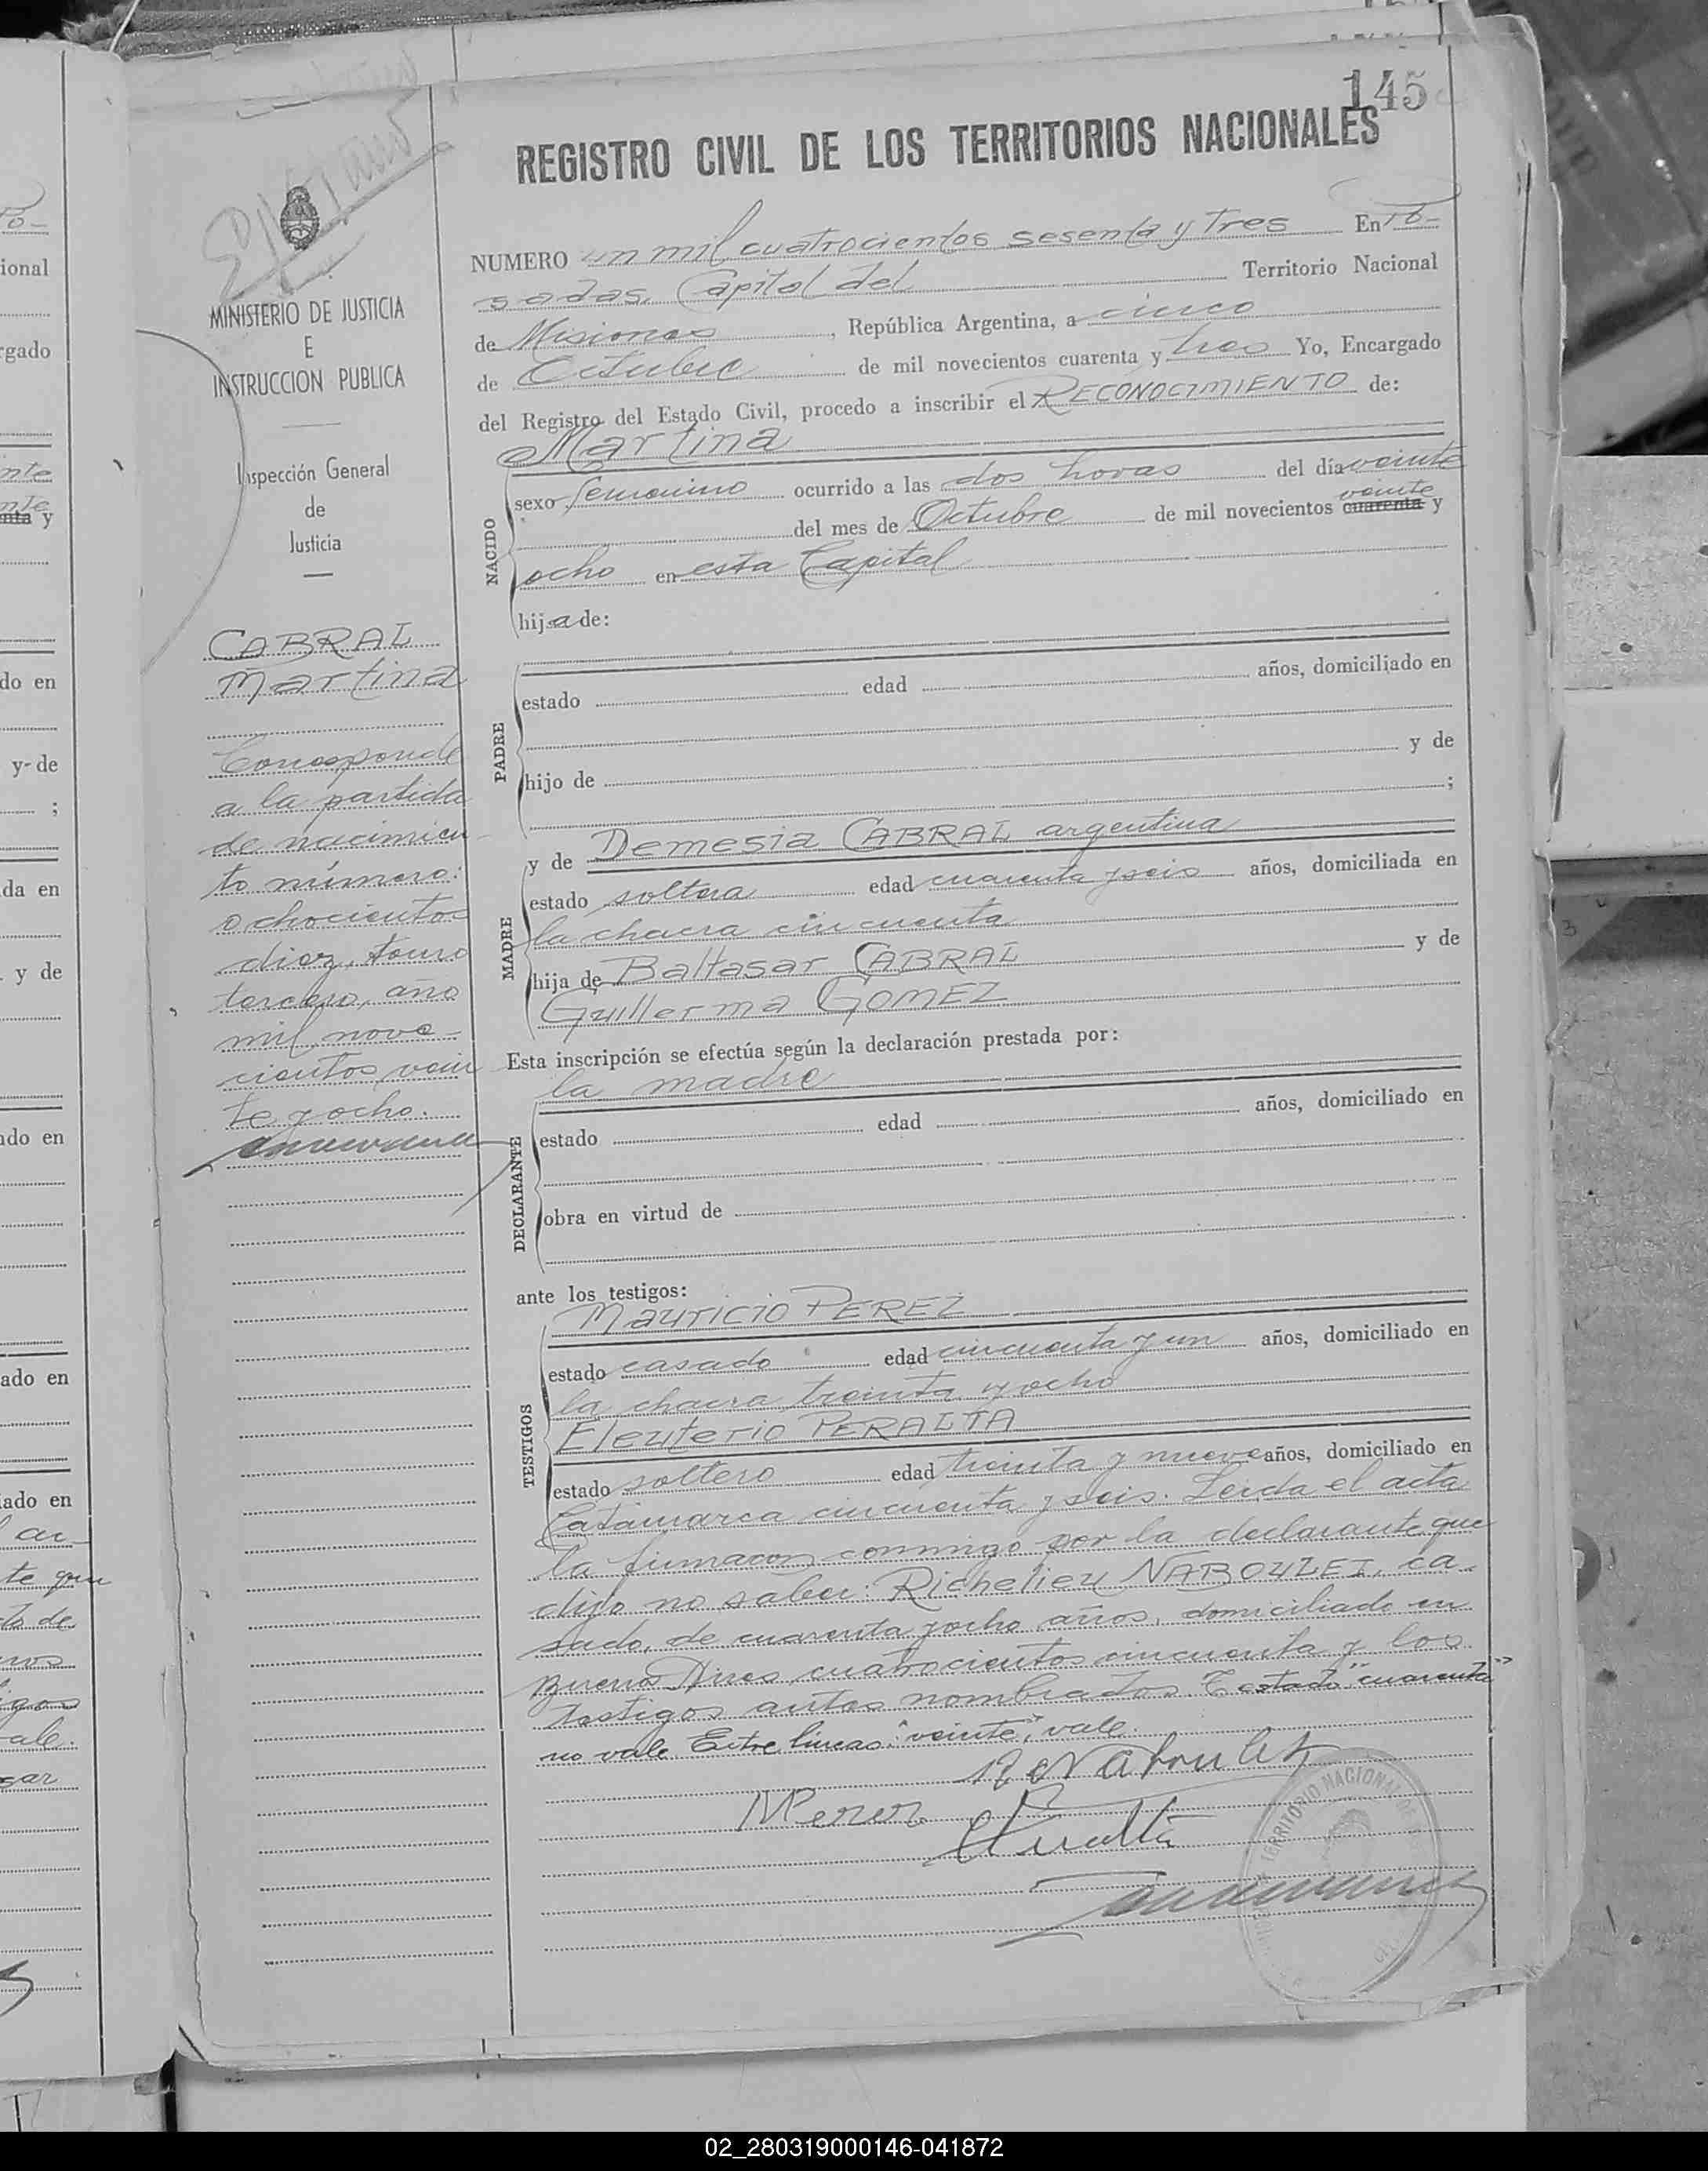 145
REGISTRO CIVIL DE LOS TERRITORIOS NACIONALES
NUMERO un mil cuatrocientos sesenta y tres En Po-
sadas, Capital del Territorio Nacional
de Misiones, República Argentina, a cinco
de Octubre de mil novecientos cuarenta y tres Yo, Encargado
del Registro del Estado Civil, procedo a inscribir el RECONOCIMIENTO de:
Martina
NACIDO
sexo femenino ocurrido a las dos horas del día veinte
del mes de Octubre de mil novecientos cuarenta veinte y
ocho en esta Capital
hija de:
PADRE
estado edad años, domiciliado en
hijo de y de
;
MADRE
y de Demesia CABRAL argentina
estado soltera edad cuarenta y seis años, domiciliada en
la chacra cincuenta
hija de Baltasar CABRAL y de
Guillerma GOMEZ
Esta inscripción se efectúa según la declaración prestada por:
la madre
DECLARANTE
estado edad años, domiciliado en
obra en virtud de
ante los testigos:
TESTIGOS
Mauricio PEREZ
estado casado edad cincuenta y un años, domiciliado en
la chacra treinta y ocho
Eleuterio PERALTA
estado soltero edad treinta y nueve años, domiciliado en
Catamarca cincuenta y seis. Leida el acta
la firmaron conmigo por la declarante que
dijo no saber: Richelieu NABOULET, ca-
sado, de cuarenta y ocho años, domiciliado en
Buenos Aires cuatrocientos cincuenta y los
testigos antes nombrados. Testado: "cuarenta"
no vale. Entre lineas: "veinte", vale.
MPerez
MINISTERIO DE JUSTICIA
E
INSTRUCCION PUBLICA
Inspección General
de
Justicia
CABRAL
Martina
Corresponde
a la partida
de nacimien-
to número:
ochocientos
diez, tomo
tercero, año
mil nove-
cientos vein
te y ocho.
TERRITORIO NACIONAL DE
02_280319000146-041872